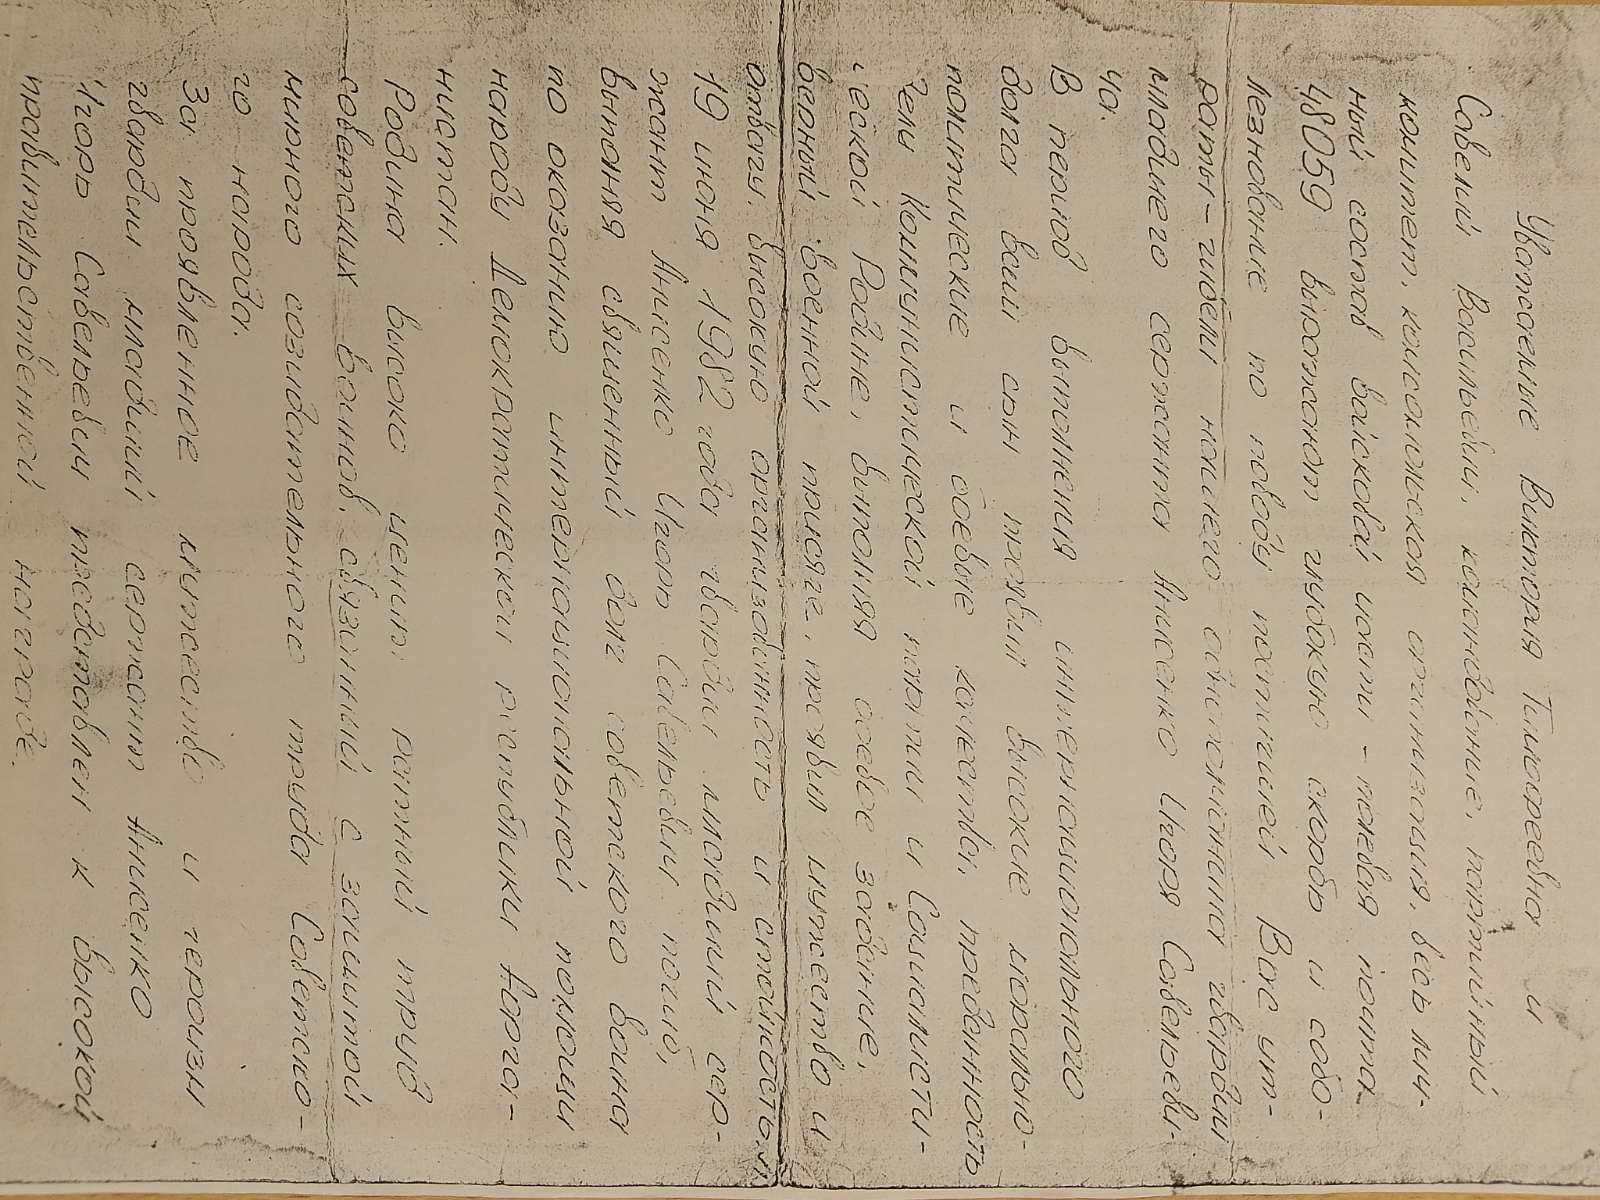 Уватаемые Виктория Тимофеевна и
Савелий Васильевич, командование, партийный
комитет, комсомольская организация, весь лич-
ный состав войсковой части - полевая почта
48059 выражают глубокую скорбь и собо-
лезнование по поводу постигшей Вас ут-
раты - гибели нашего однополчанина гвардии
младшего сержанта Анисенко Игоря Савельеви-
ча.
В период выполнения интернационального
долга ваш сын проявил высокие морально-
политические и боевые качества, преданность
делу Коммунистической партии и Социалисти-
ческой Родине, выполняя боевое задание,
верный военной присяге, проявил мужество и
отвагу, высокую организованность и стойкость.
19 июня 1982 года гвардии младший сер-
жант Анисенко Игорь Савельевич погиб,
выполняя священный долг советского воина
по оказанию интернациональной помощи
народу Демократической республики Афга-
нистан.
Родина высоко ценит ратный труд
советских воинов, связанный с защитой
мирного созидательного труда Советско-
го народа.
За проявленное мужество и героизм
гвардии младший сержант Анисенко
Игорь Савельевич представлен к высокой
правительственной награде.